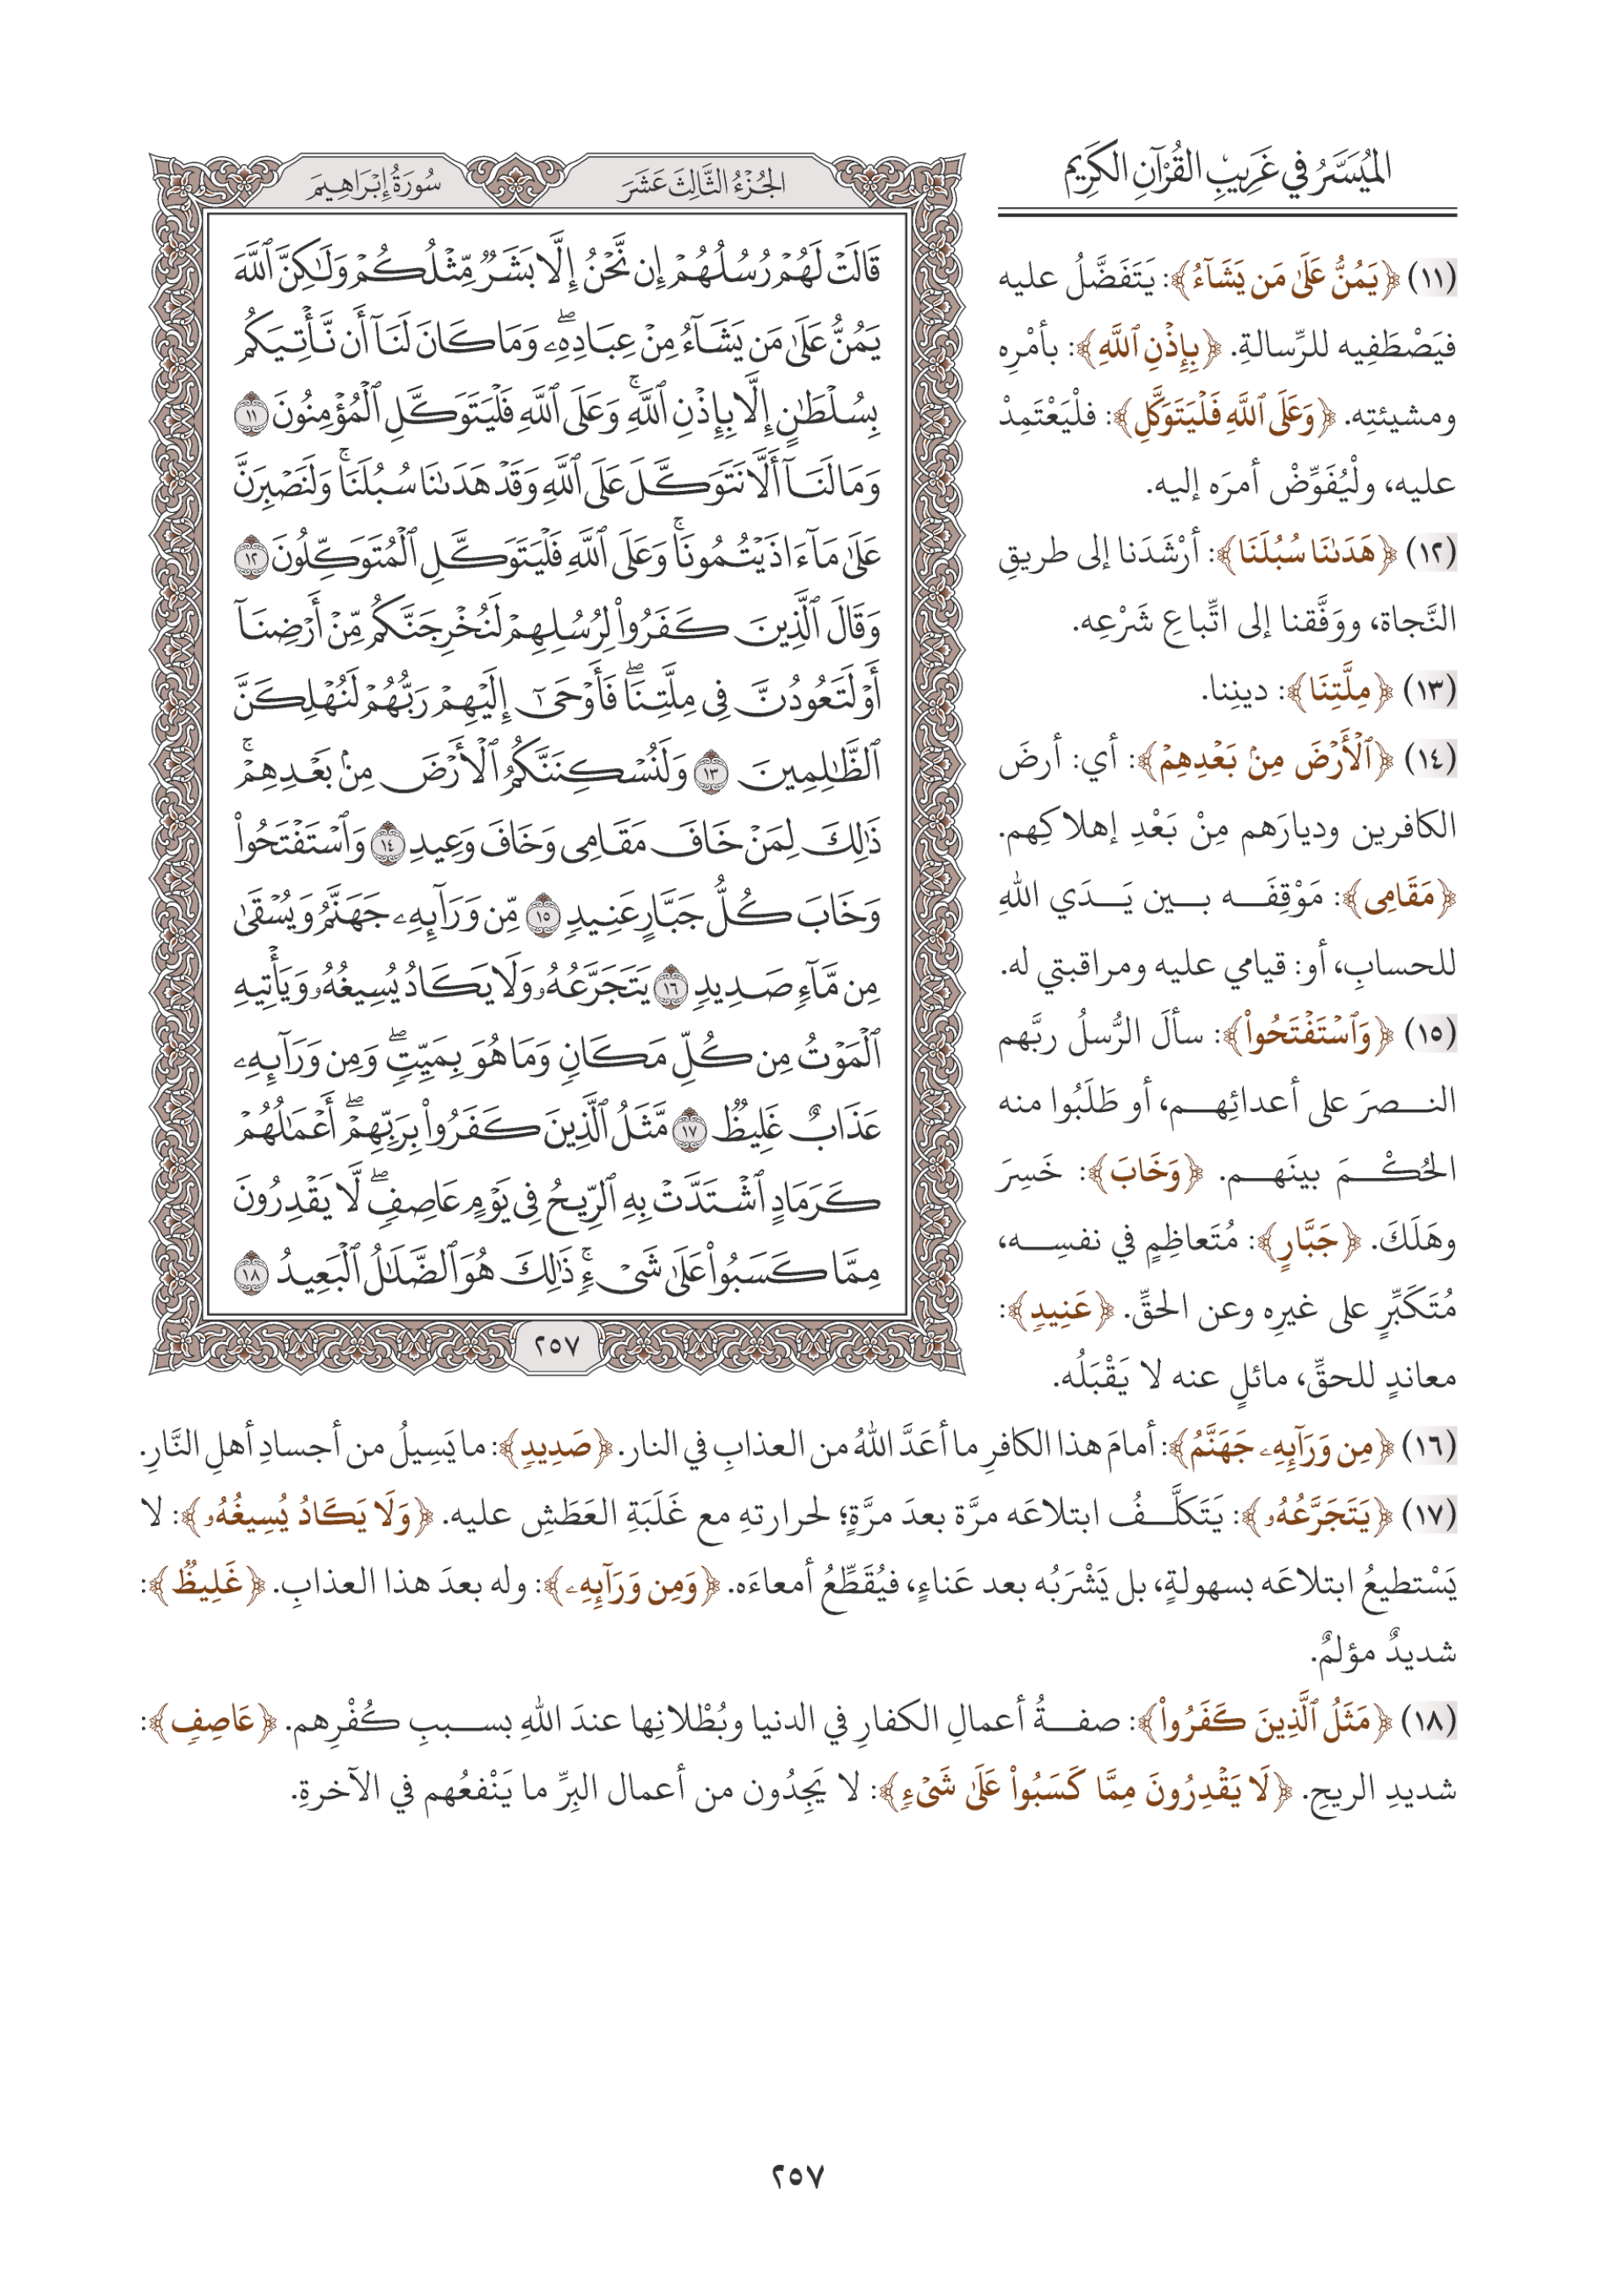 المُيَسَّرُ في غَرِيبِ القُرْآنِ الكَرِيم
الجُزْءُ الثَّالِثَ عَشَرَ
سُورَةُ إِبْرَاهِيمَ
قَالَتْ لَهُمْ رُسُلُهُمْ إِن نَّحْنُ إِلَّا بَشَرٌ مِّثْلُكُمْ وَلَٰكِنَّ ٱللَّهَ
يَمُنُّ عَلَىٰ مَن يَشَآءُ مِنْ عِبَادِهِۦۖ وَمَا كَانَ لَنَآ أَن نَّأْتِيَكُم
بِسُلْطَٰنٍ إِلَّا بِإِذْنِ ٱللَّهِۚ وَعَلَى ٱللَّهِ فَلْيَتَوَكَّلِ ٱلْمُؤْمِنُونَ ١١
وَمَا لَنَآ أَلَّا نَتَوَكَّلَ عَلَى ٱللَّهِ وَقَدْ هَدَىٰنَا سُبُلَنَاۚ وَلَنَصْبِرَنَّ
عَلَىٰ مَآ ءَاذَيْتُمُونَاۚ وَعَلَى ٱللَّهِ فَلْيَتَوَكَّلِ ٱلْمُتَوَكِّلُونَ ١٢
وَقَالَ ٱلَّذِينَ كَفَرُوا۟ لِرُسُلِهِمْ لَنُخْرِجَنَّكُم مِّنْ أَرْضِنَآ
أَوْ لَتَعُودُنَّ فِى مِلَّتِنَاۖ فَأَوْحَىٰٓ إِلَيْهِمْ رَبُّهُمْ لَنُهْلِكَنَّ
ٱلظَّٰلِمِينَ ١٣ وَلَنُسْكِنَنَّكُمُ ٱلْأَرْضَ مِنۢ بَعْدِهِمْۚ
ذَٰلِكَ لِمَنْ خَافَ مَقَامِى وَخَافَ وَعِيدِ ١٤ وَٱسْتَفْتَحُوا۟
وَخَابَ كُلُّ جَبَّارٍ عَنِيدٍ ١٥ مِّن وَرَآئِهِۦ جَهَنَّمُ وَيُسْقَىٰ
مِن مَّآءٍ صَدِيدٍ ١٦ يَتَجَرَّعُهُۥ وَلَا يَكَادُ يُسِيغُهُۥ وَيَأْتِيهِ
ٱلْمَوْتُ مِن كُلِّ مَكَانٍ وَمَا هُوَ بِمَيِّتٍۖ وَمِن وَرَآئِهِۦ
عَذَابٌ غَلِيظٌ ١٧ مَّثَلُ ٱلَّذِينَ كَفَرُوا۟ بِرَبِّهِمْۖ أَعْمَٰلُهُمْ
كَرَمَادٍ ٱشْتَدَّتْ بِهِ ٱلرِّيحُ فِى يَوْمٍ عَاصِفٍۖ لَّا يَقْدِرُونَ
مِمَّا كَسَبُوا۟ عَلَىٰ شَىْءٍۚ ذَٰلِكَ هُوَ ٱلضَّلَٰلُ ٱلْبَعِيدُ ١٨
٢٥٧
(١١) ﴿يَمُنُّ عَلَىٰ مَن يَشَآءُ﴾: يَتَفَضَّلُ عليه
فيَصْطَفِيه للرِّسالةِ. ﴿بِإِذْنِ ٱللَّهِ﴾: بأمْرِه
ومشيئتِه. ﴿وَعَلَى ٱللَّهِ فَلْيَتَوَكَّلِ﴾: فلْيَعْتَمِدْ
عليه، ولْيُفَوِّضْ أمرَه إليه.
(١٢) ﴿هَدَىٰنَا سُبُلَنَا﴾: أرْشَدَنا إلى طريقِ
النَّجاة، ووَفَّقنا إلى اتِّباعِ شَرْعِه.
(١٣) ﴿مِلَّتِنَا﴾: دينِنا.
(١٤) ﴿ٱلْأَرْضَ مِنۢ بَعْدِهِمْ﴾: أي: أرضَ
الكافرين وديارَهم مِنْ بَعْدِ إهلاكِهم.
﴿مَقَامِى﴾: مَوْقِفَه بين يَدَي اللهِ
للحسابِ، أو: قيامي عليه ومراقبتي له.
(١٥) ﴿وَٱسْتَفْتَحُوا۟﴾: سألَ الرُّسلُ ربَّهم
النصرَ على أعدائِهم، أو طَلَبُوا منه
الحُكْمَ بينَهم. ﴿وَخَابَ﴾: خَسِرَ
وهَلَكَ. ﴿جَبَّارٍ﴾: مُتَعاظِمٍ في نفسِه،
مُتَكَبِّرٍ على غيرِه وعن الحقِّ. ﴿عَنِيدٍ﴾:
معاندٍ للحقِّ، مائلٍ عنه لا يَقْبَلُه.
(١٦) ﴿مِن وَرَآئِهِۦ جَهَنَّمُ﴾: أمامَ هذا الكافرِ ما أعَدَّ اللهُ من العذابِ في النار. ﴿صَدِيدٍ﴾: ما يَسِيلُ من أجسادِ أهلِ النَّارِ.
(١٧) ﴿يَتَجَرَّعُهُۥ﴾: يَتَكلَّفُ ابتلاعَه مرَّة بعدَ مرَّةٍ؛ لحرارتهِ مع غَلَبَةِ العَطَشِ عليه. ﴿وَلَا يَكَادُ يُسِيغُهُۥ﴾: لا
يَسْتطيعُ ابتلاعَه بسهولةٍ، بل يَشْرَبُه بعد عَناءٍ، فيُقَطِّعُ أمعاءَه. ﴿وَمِن وَرَآئِهِۦ﴾: وله بعدَ هذا العذابِ. ﴿غَلِيظٌ﴾:
شديدٌ مؤلمٌ.
(١٨) ﴿مَثَلُ ٱلَّذِينَ كَفَرُوا۟﴾: صفةُ أعمالِ الكفارِ في الدنيا وبُطْلانِها عندَ اللهِ بسببِ كُفْرِهم. ﴿عَاصِفٍ﴾:
شديدِ الريحِ. ﴿لَا يَقْدِرُونَ مِمَّا كَسَبُوا۟ عَلَىٰ شَىْءٍ﴾: لا يَجِدُون من أعمال البِرِّ ما يَنْفعُهم في الآخرةِ.
٢٥٧